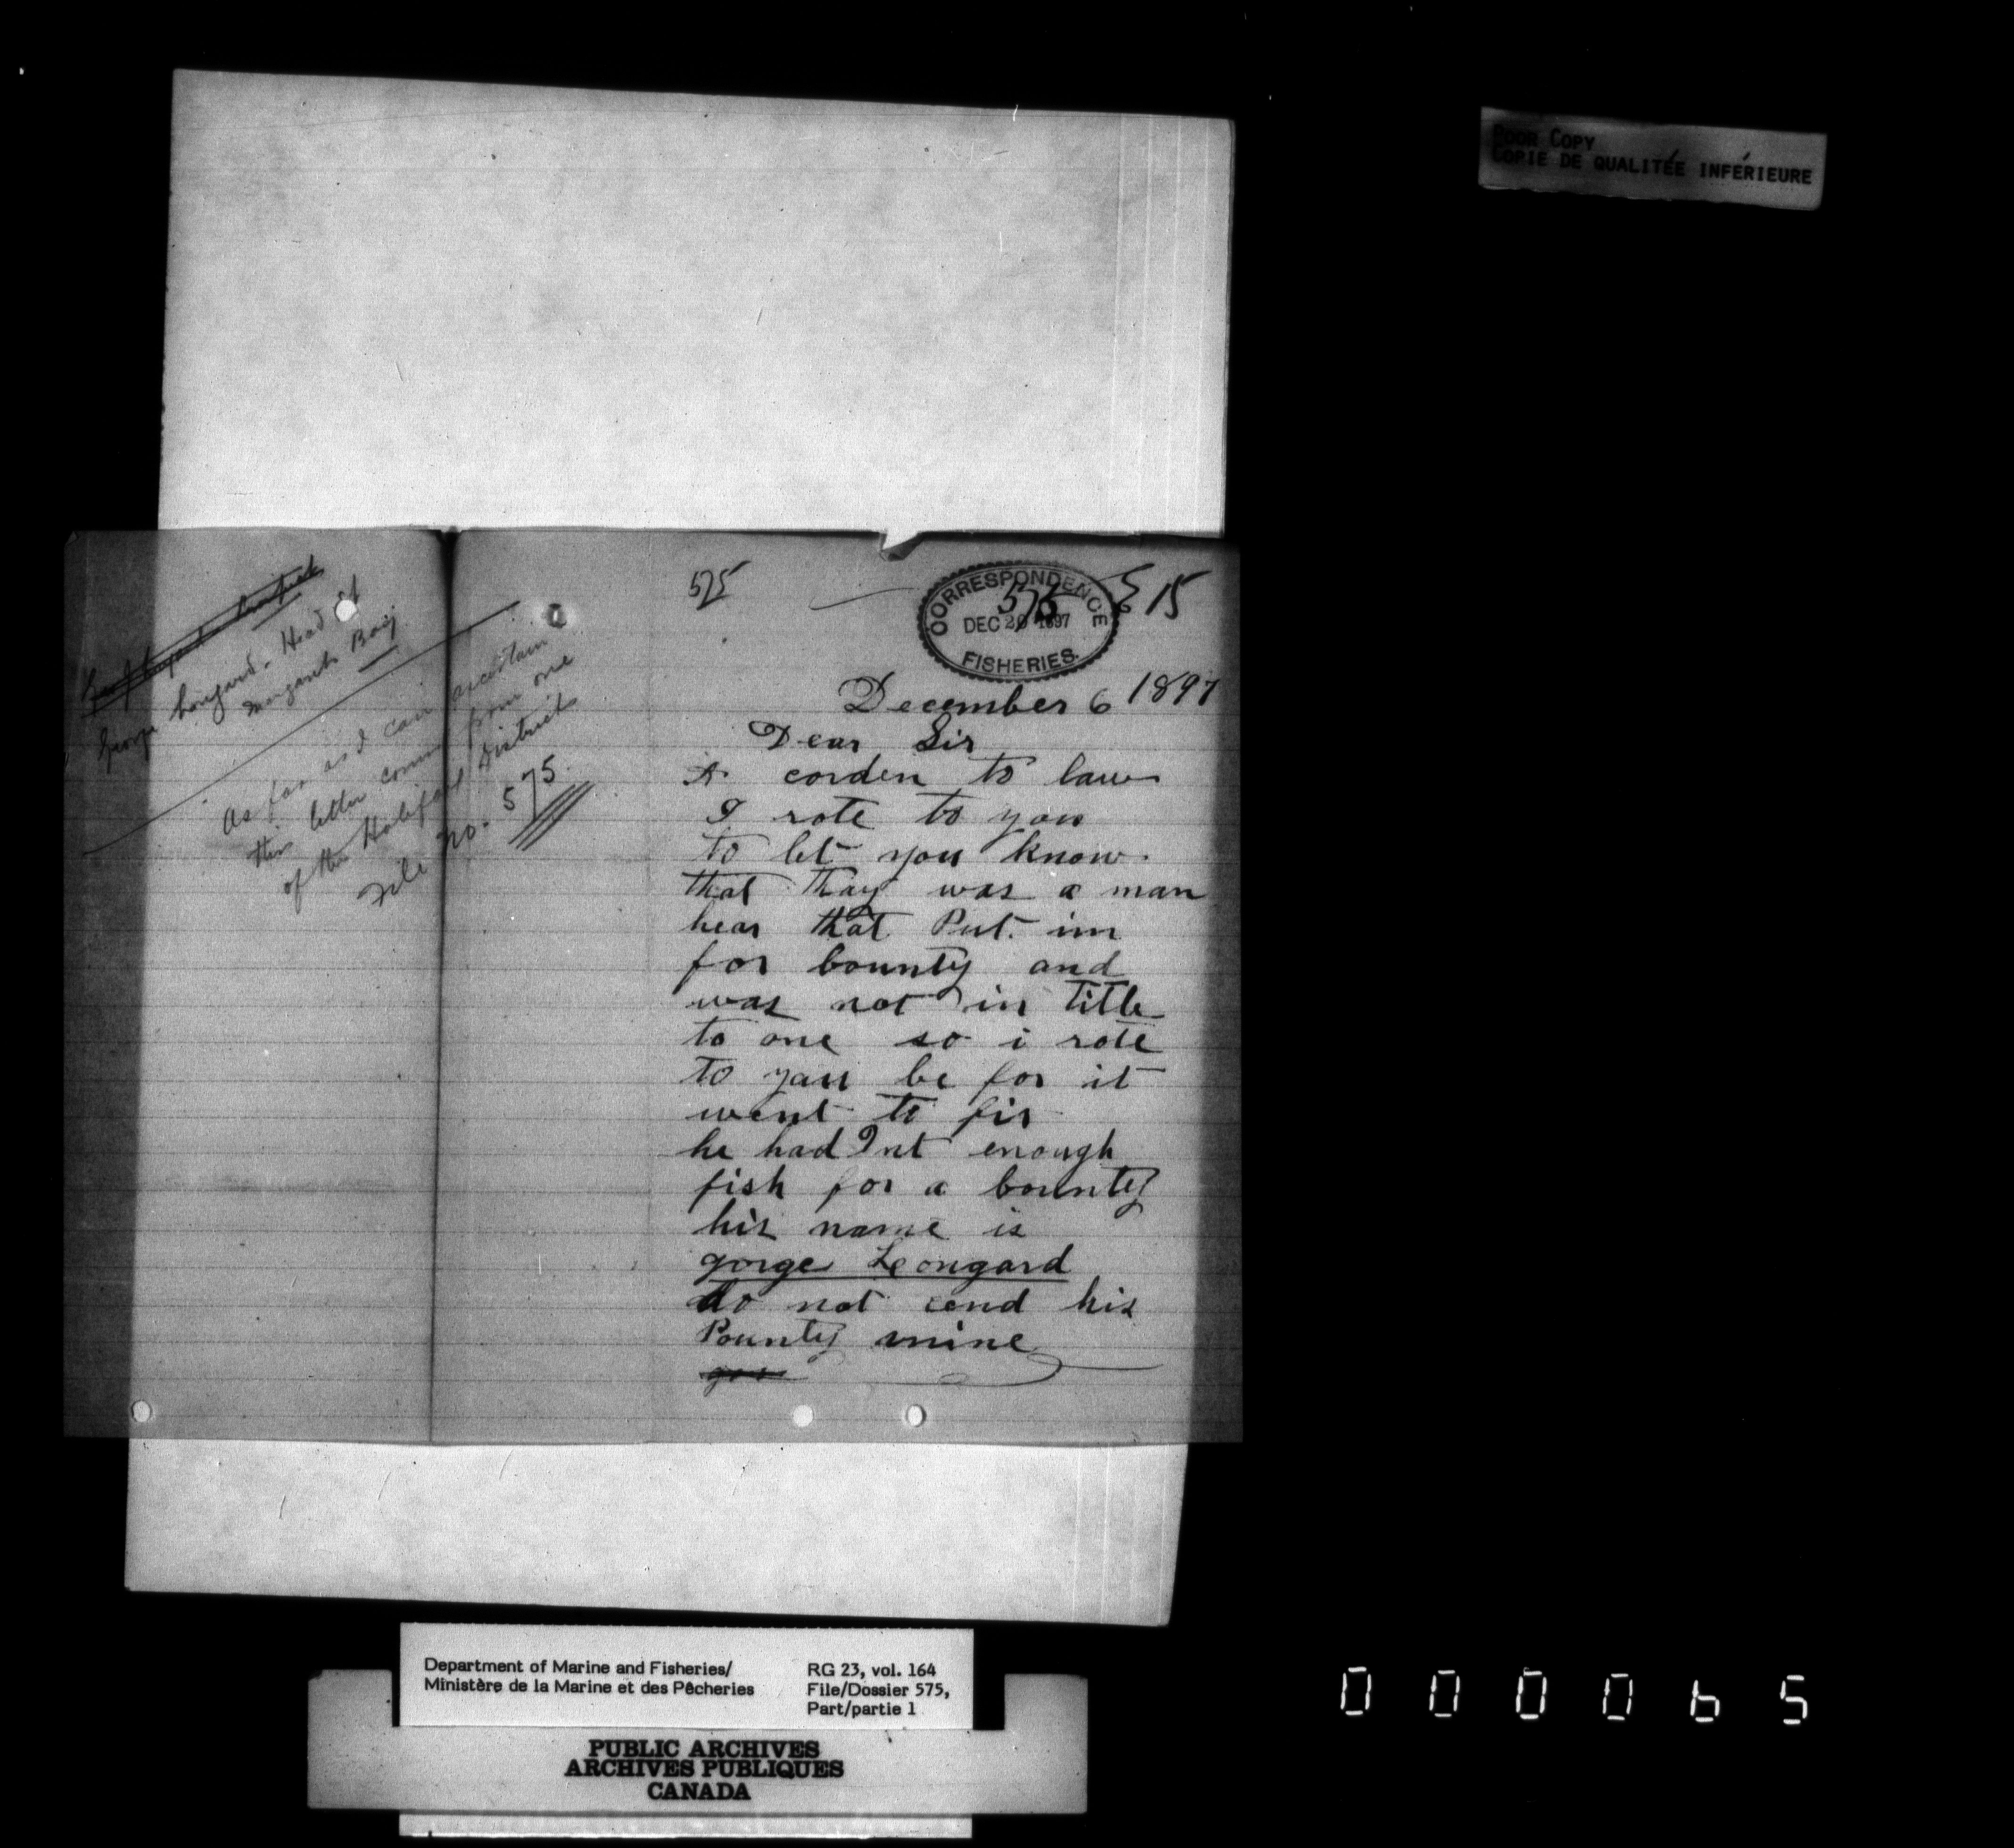 POOR COPY
COPIE DE QUALITÉE INFÉRIEURE
George Longard. Head of St
Margarets Bay.
As far as I can ascertain
this letter comes from one
of the Halifax Districts
File no. 575.
575
E 15
CORRESPONDENCE
575
DEC 20 1897
FISHERIES.
December 6 1897
Dear Sir
A corden to law
I rote to you
to let you know
that thay was a man
hear that Put. im
for bounty and
was not in title
to one so i rote
to you be for it
went to fir
he had Int enough
fish for a bounty
his name is
gorge Leongard
do not cend his
Pounty mine
Department of Marine and Fisheries/
Ministère de la Marine et des Pêcheries
RG 23, vol. 164
File/Dossier 575,
Part/partie 1
PUBLIC ARCHIVES
ARCHIVES PUBLIQUES
CANADA
000065